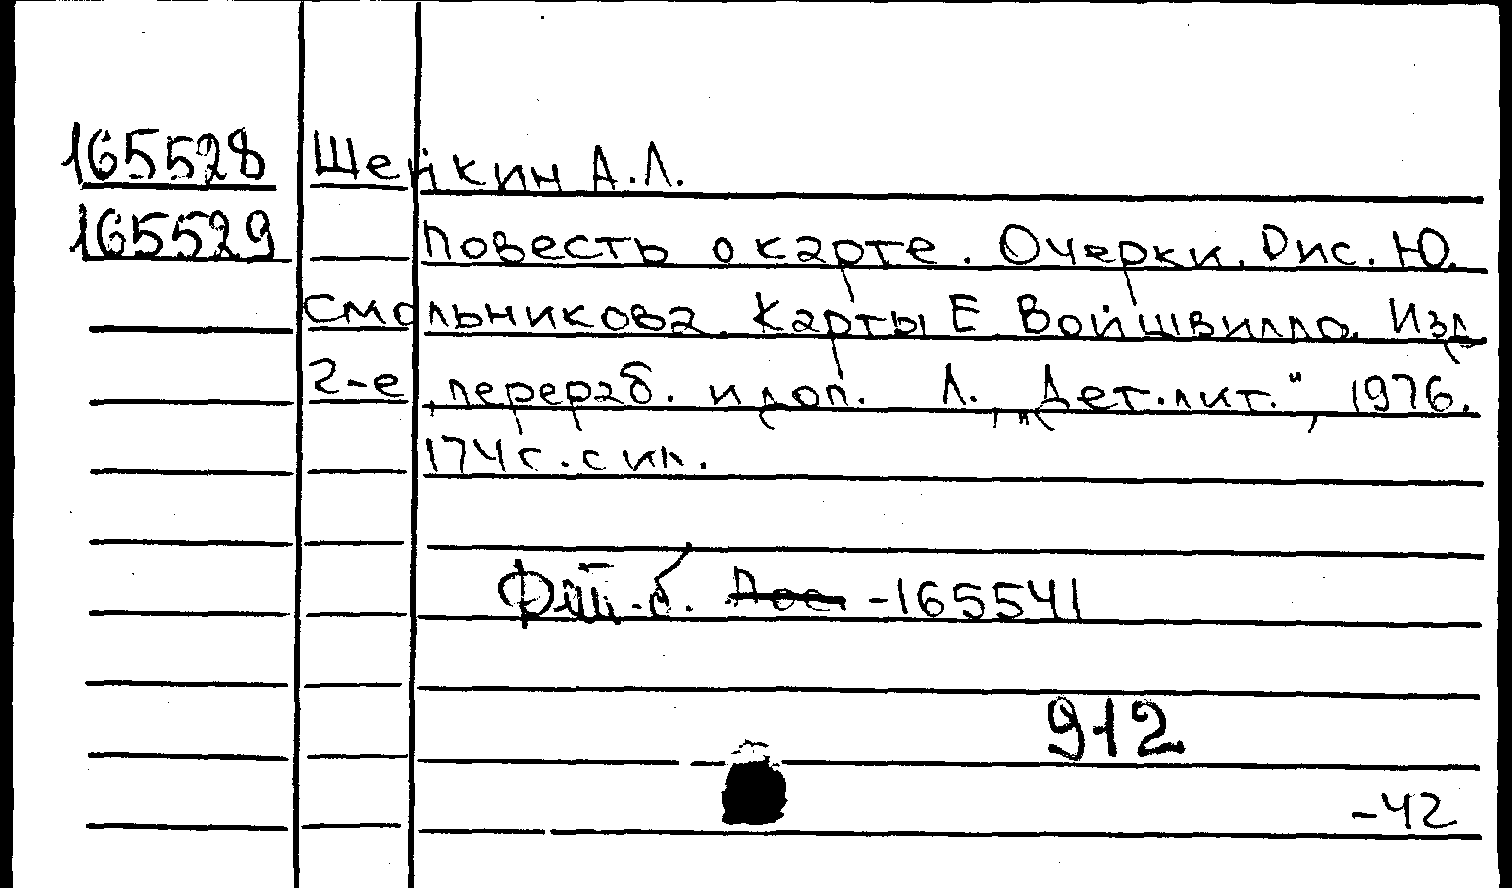 165528 Шейкин А.Л.
165529 Повесть о карте. Очерки. Рис. Ю.
Смольникова. Карты Е. Войшвилло. Изд.
2-е, перераб. и доп. Л., „Дет.лит.", 1976.
174 с. с ил.
-165541
912
-42